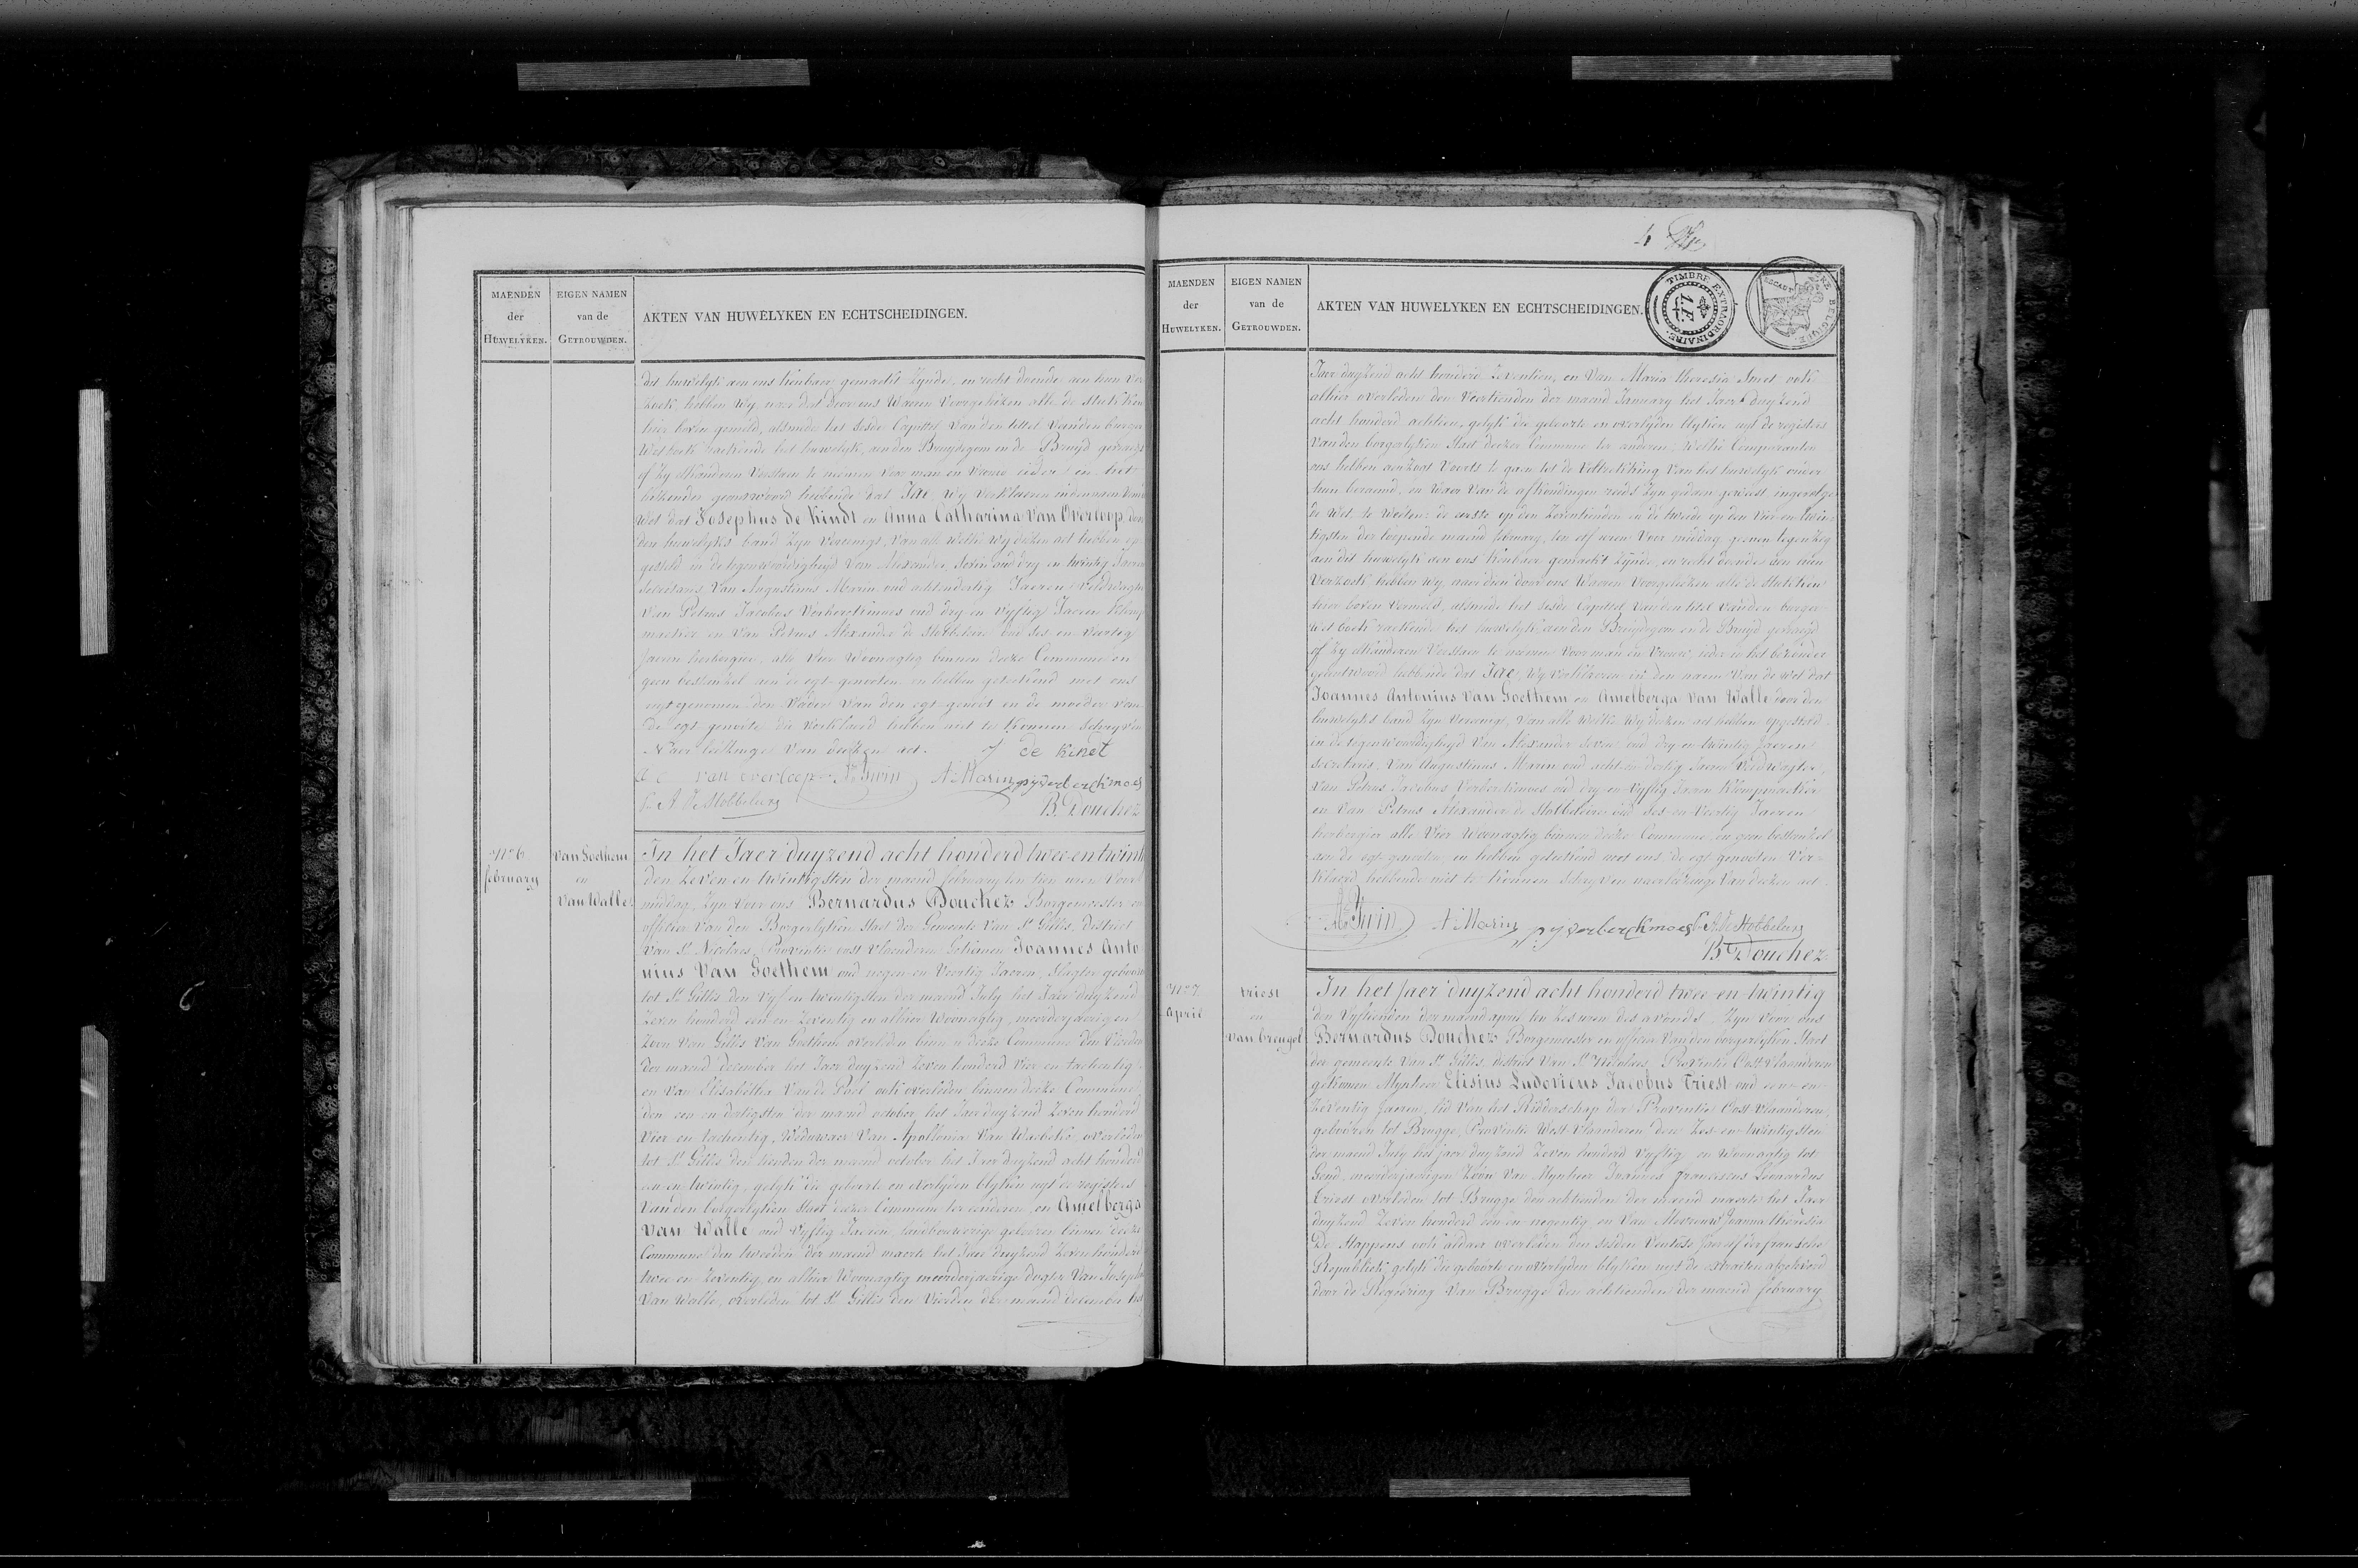 MAENDEN
der
HUWELYKEN.
EIGEN NAMEN
van de
GETROUWDEN.
AKTEN VAN HUWELYKEN EN ECHTSCHEIDINGEN.
dit huwelyk aen ons kenbaer gemaekt zynde, en recht doende aen hun ver
zoek hebben wy, naer dat door ons waeren voorgelezen alle de stukken
hier boven gemeld, alsmede het sesde Capittel van den tittel van den burger
Wetboek raekende het huwelyk, aen den Bruydegom en de Bruyd gevraegt
of zy elkanderen verstaen te neemen voor man en vrouw ieder in het
byzonder geantwoord hebbende dat Jae, wy verklaeren in den naem van de
wet dat Josephus de Kindt en Anna Catharina Van Overloop door
den huwelyks band zyn vereenigt, van alle welke wy deezen act hebben op
gesteld in de tegenwoordigheyd van Alexander oud dry en twintig Jaeren
Secretaris, van Augustinus Marin oud achtendertig Jaeren veldwagter
van Petrus Jacobus Verberckmoes oud dry en vyftig Jaeren Klomp
maeker en van Petrus Alexander de Stobbeleire oud ses en veertig
Jaeren herbergier alle vier woonagtig binnen deeze Commune en
geen bestonkel aen de egt-genooten en hebben geteekend met ons
uytgenomen den vader van den egt-genoot en de moeder van
de egt genoote die verklaerd hebben niet te kunnen schryven
Naer leezinge van deezen act. J de Kindt
A C van overloop A Marin p j verberckmoes
P. A De Stobbeleire
B Douchez
N° 6
february
van Goethem
en
Van Walle
In het Jaer duyzend acht honderd twee en twint
den zeven en twintigsten der maend february ten tien uren voor
middag, zyn voor ons Bernardus Douchez Borgemeester en
officier van den Borgerlyken Staet der Gemeente van St Gillis district
van St Nicolaes, Provintie oost vlaenderen gekomen Joannes Anto
nius Van Goethem oud negen en veertig Jaeren, slagter gebooren
tot St Gillis den vyf en twintigsten der maend July het Jaer duyzend
zeven honderd een en zeventig en alhier woonagtig, meerderjaerigen
zoon van Gillis van Goethem overleden binnen deeze Commune den vierden
der maend december het Jaer duyzend zeven honderd vier en tachentig
en van Elisabetha Van de Poel ook overleden binnen deeze Commune
den een en dertigsten der maend october het Jaer duyzend zeven honderd
vier en tachentig, Weduwaer van Apollonia Van overleden
tot St Gillis den tienden der maend october het Jaer duyzend acht honderd
een en twintig, gelyk die geboorte en overlyden blyken uyt de registers
van den borgerlyken staet deezer Commune ter anderen, en Amelberga
Van Walle oud vyftig Jaeren, landbouwerige gebooren binnen deeze
Commune den tweeden der maend maerte het Jaer duyzend zeven honderd
twee en zeventig, en alhier woonagtig meerderjaerige dogter van Joseph
Van Walle, overleden tot St Gillis den vierden der maend december het
4
MAENDEN
der
HUWELYKEN.
EIGEN NAMEN
van de
GETROUWDEN.
AKTEN VAN HUWELYKEN EN ECHTSCHEIDINGEN.
TIMBRE EXTRAORDINAIRE
Jaer duyzend acht honderd zeventien, en van Maria theresia Smet ook
alhier overleden den veertienden der maend January het Jaer duyzend
acht honderd achtien, gelyk die geboorte en overlyden blyken uyt de registers
van den borgerlyken Staet deezer Commune ter anderen; Welke Comparanten
ons hebben aenzogt voorts te gaen tot de voltrekking van het huwelyk onder
hun beraemd, en waer van de afkondingen reeds zyn gedaen geweest ingevolge
de wet te weeten: de eerste op den zeventienden en de tweede op den vier en twin-
tigsten der loopende maend february, ten elf uren voor middag geenen tegenzeg
aen dit huwelyk aen ons kenbaer gemaekt zynde, en recht doende aen hun
verzoek hebben wy, naer dien door ons waeren voorgelezen alle de stukken
hier boven vermeld, alsmede het sesde Capittel van den titel van den burger
wet boek raekende het huwelyk, aen den Bruydegom en de Bruyd gevraegd
of zy elkanderen verstaen te neemen voor man en vrouw, ieder in het bezonder
geantwoord hebbende dat Jae, wy verklaeren in den naem van de wet dat
Joannes Antonius Van Goethem en Amelberga Van Walle door den
huwelyks band zyn vereenigt, van alle welke wy deezen act hebben opgesteld
in de tegenwoordigheyd van Alexander oud dry-en-twintig Jaeren
Secretaris, van Augustinus Marin oud acht-en-dertig Jaeren Veldwagter,
van Petrus Jacobus Verberckmoes oud dry-en-vyftig Jaeren Klompmaeker
en van Petrus Alexander de Stobbeleire oud ses-en-veertig Jaeren
herbergier alle vier woonagtig binnen deeze Commune, en geen bestonkel
aen de egt-genooten, en hebben geteekend met ons de egt-genooten ver-
klaerd hebbende niet te kunnen schryven naer leezinge van deezen act
A Marin p j verberckmoes P. A De Stobbeleire
B Douchez
N° 7
April
triest
en
van Creugel
In het Jaer duyzend acht honderd twee en twintig
den vyftienden der maend april ten zes uren des avonds, zyn voor ons
Bernardus Douchez Borgemeester en officier van den borgerlyken Staet
der gemeente van St Gillis, district van St Nicolaes, Provintie Oost vlaenderen
gekomen Mynheer Elisius Ludovicus Jacobus Triest oud een-en-
zeventig Jaeren, lid van het Ridderschap der Provintie Oost-vlaanderen,
gebooren tot Brugge, Provintie West-vlaenderen den zes-en-twintigsten
der maend July het jaer duyzend zeven honderd vyftig en woonagtig tot
Gend, meerderjaerigen zoon van Mynheer Joannes Franciscus Leonardus
triest overleden tot Brugge den achtienden der maend maerte het Jaer
duyzend zeven honderd een en negentig en van Mevrouw Joanna theresia
De Stappens ook aldaer overleden den sesden Ventose Jaer elf der fransche
Republiek gelyk die geboorte en overlyden blyken uyt de extraiten afgeleverd
door de Regeering van Brugge den achtienden der maend february